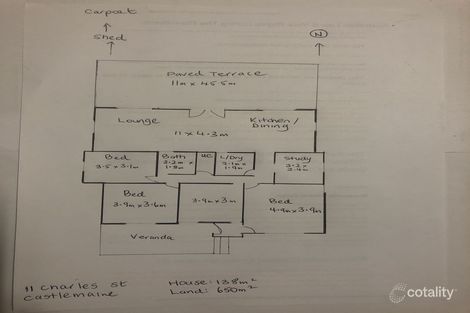 Carport
Shed
N
Paved Terrace
11m x 45.5m
Lounge
Kitchen/
Dining
11 x 4.3m
Bed
3.5 x 3.1m
Bath
2.2m x
1.8m
WC
L/Dry
2.1m x
1.9m
Study
3.2 x
2.4m
Bed
3.9m x 3.6m
3.9m x 3m
Bed
4.9m x 3.9m
Veranda
11 Charles St
Castlemaine
House: 138m²
Land: 650m²
cotality